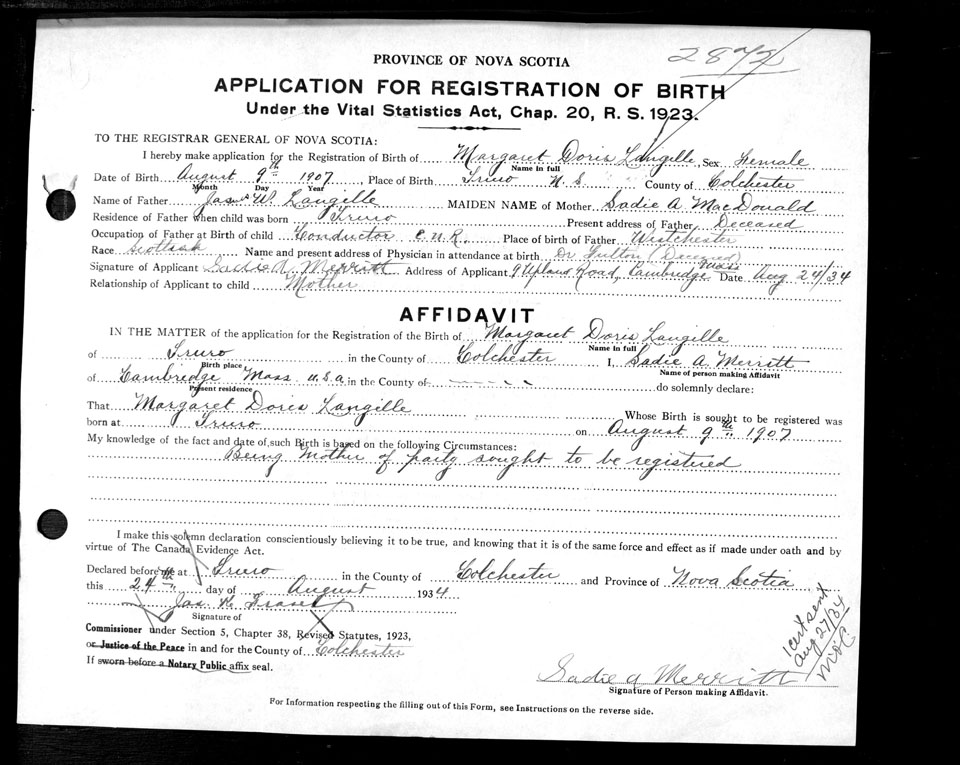 2872
PROVINCE OF NOVA SCOTIA
APPLICATION FOR REGISTRATION OF BIRTH
Under the Vital Statistics Act, Chap. 20, R. S. 1923.
TO THE REGISTRAR GENERAL OF NOVA SCOTIA:
I hereby make application for the Registration of Birth of Margaret Doris Langille, Sex Female
Name in full
Date of Birth August 9th 1907, Place of Birth Truro N.S. County of Colchester
Month Day Year
Name of Father Jas W. Langille MAIDEN NAME of Mother Sadie A MacDonald
Residence of Father when child was born Truro Present address of Father Deceased
Occupation of Father at Birth of child Conductor C.N.R. Place of birth of Father Westchester
Race Scottish Name and present address of Physician in attendance at birth Dr Fulton (Deceased)
Signature of Applicant Sadie A. Merritt Address of Applicant 9 Upland Road, Cambridge Mass Date Aug 24/34
Relationship of Applicant to child Mother
AFFIDAVIT
IN THE MATTER of the application for the Registration of the Birth of Margaret Doris Langille
Name in full
of Truro in the County of Colchester I, Sadie A. Merritt
Birth place Name of person making Affidavit
of Cambridge Mass U.S.A. in the County of do solemnly declare:
Present residence
That Margaret Doris Langille Whose Birth is sought to be registered was
born at Truro on August 9th 1907
My knowledge of the fact and date of such Birth is based on the following Circumstances:
Being Mother of party sought to be registered
I make this solemn declaration conscientiously believing it to be true, and knowing that it is of the same force and effect as if made under oath and by
virtue of The Canada Evidence Act.
Declared before me at Truro in the County of Colchester and Province of Nova Scotia
this 24th day of August 1934
Jas. K. Fraser
Signature of
Commissioner under Section 5, Chapter 38, Revised Statutes, 1923,
or Justice of the Peace in and for the County of Colchester
If sworn before a Notary Public affix seal.
1 cert sent
Aug 27/34
Sadie A Merritt
Signature of Person making Affidavit.
For Information respecting the filling out of this Form, see Instructions on the reverse side.